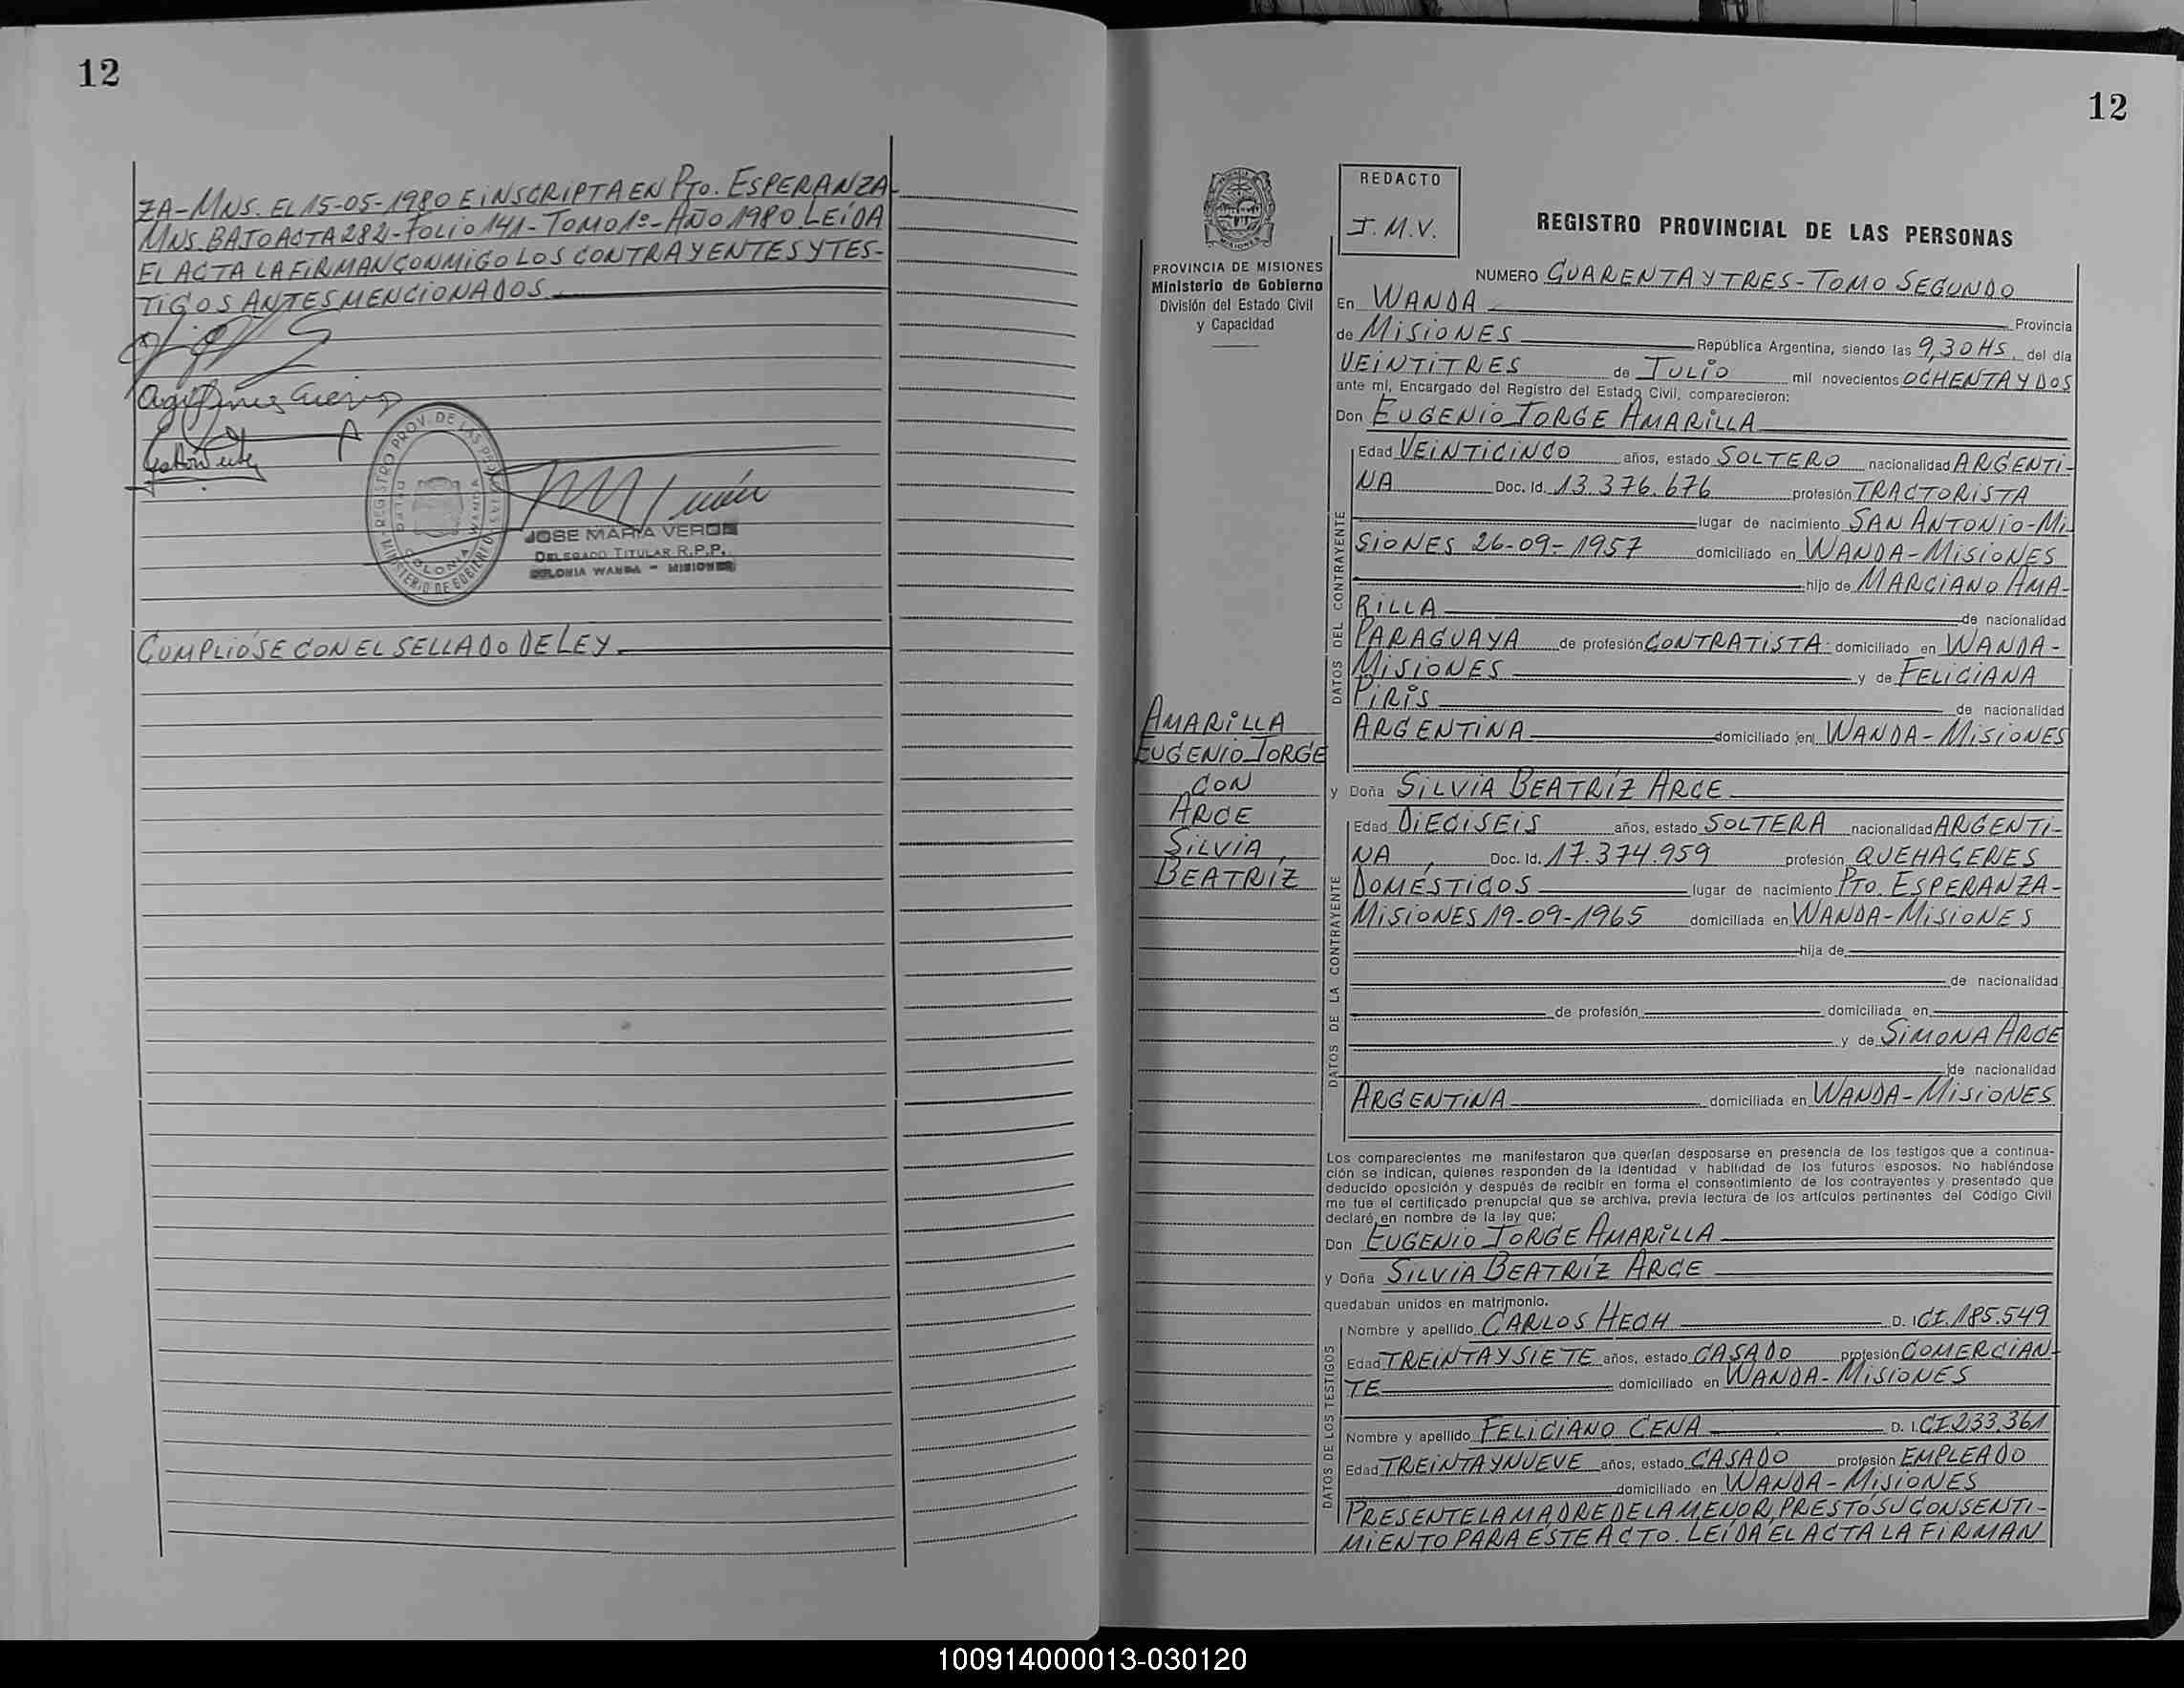 12
ZA-MNS. EL 15-05-1980 E INSCRIPTA EN PTO. ESPERANZA-
MNS. BAJO ACTA 282-FOLIO 141-TOMO 1º-AÑO 1980 LEÍDA
EL ACTA LA FIRMAN CONMIGO LOS CONTRAYENTES Y TES-
TIGOS ANTES MENCIONADOS.
REGISTRO PROV. DE LAS PERSONAS
COLONIA WANDA
MINISTERIO DE GOBIERNO
JOSE MARIA VERON
DELEGADO TITULAR R.P.P.
COLONIA WANDA - MISIONES
CUMPLIÓSE CON EL SELLADO DE LEY.
12
PROVINCIA DE MISIONES
Ministerio de Gobierno
División del Estado Civil
y Capacidad
REDACTO
J.M.V.
REGISTRO PROVINCIAL DE LAS PERSONAS
AMARILLA
EUGENIO JORGE
CON
ARCE
SILVIA
BEATRÍZ
NUMERO CUARENTA Y TRES-TOMO SEGUNDO
En WANDA Provincia
de MISIONES República Argentina, siendo las 9,30 HS. del día
VEINTITRES de JULIO mil novecientos OCHENTA Y DOS
ante mí, Encargado del Registro del Estado Civil, comparecieron:
Don EUGENIO JORGE AMARILLA
DATOS DEL CONTRAYENTE
Edad VEINTICINCO años, estado SOLTERO nacionalidad ARGENTI-
NA Doc. Id. 13.376.676 profesión TRACTORISTA
lugar de nacimiento SAN ANTONIO-MI-
SIONES 26-09-1957 domiciliado en WANDA-MISIONES
hijo de MARCIANO AMA-
RILLA de nacionalidad
PARAGUAYA de profesión CONTRATISTA domiciliado en WANDA-
MISIONES y de FELICIANA
PIRIS de nacionalidad
ARGENTINA domiciliado en WANDA-MISIONES
y Doña SILVIA BEATRÍZ ARCE
DATOS DE LA CONTRAYENTE
Edad DIECISEIS años, estado SOLTERA nacionalidad ARGENTI-
NA, Doc. Id. 17.374.959 profesión QUEHACERES
DOMÉSTICOS lugar de nacimiento PTO. ESPERANZA-
MISIONES 19-09-1965 domiciliada en WANDA-MISIONES
hija de
de nacionalidad
de profesión domiciliada en
y de SIMONA ARCE
de nacionalidad
ARGENTINA domiciliada en WANDA-MISIONES
Los comparecientes me manifestaron que querían desposarse en presencia de los testigos que a continua-
ción se indican, quienes responden de la identidad y habilidad de los futuros esposos. No habiéndose
deducido oposición y después de recibir en forma el consentimiento de los contrayentes y presentado que
me fue el certificado prenupcial que se archiva, previa lectura de los artículos pertinentes del Código Civil
declaré en nombre de la ley que:
Don EUGENIO JORGE AMARILLA
y Doña SILVIA BEATRÍZ ARCE
quedaban unidos en matrimonio.
DATOS DE LOS TESTIGOS
Nombre y apellido CARLOS HECH D. I CI.185.549
Edad TREINTA Y SIETE años, estado CASADO profesión COMERCIAN-
TE domiciliado en WANDA-MISIONES
Nombre y apellido FELICIANO CENA D. I. CI.233.361
Edad TREINTA Y NUEVE años, estado CASADO profesión EMPLEADO
domiciliado en WANDA-MISIONES
PRESENTE LA MADRE DE LA MENOR, PRESTÓ SU CONSENTI-
MIENTO PARA ESTE ACTO. LEÍDA EL ACTA LA FIRMAN
100914000013-030120